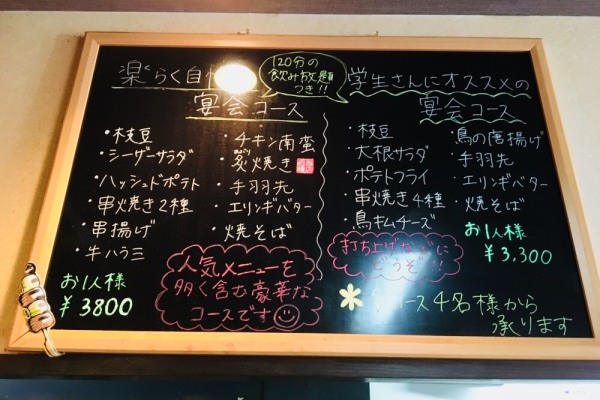 楽らく自
宴会コース
120分の
飲み放題
つき!!
・枝豆
・シーザーサラダ
・ハッシュドポテト
・串焼き2種
・串揚げ
・牛ハラミ
・チキン南蛮
・炙焼き
・手羽先
・エリンギバター
・焼そば
お1人様
¥3800
人気メニューを
多く含む豪華な
コースです
学生さんにオススメの
宴会コース
・枝豆
・大根サラダ
・ポテトフライ
・串焼き4種
・鳥キムチーズ
・鳥の唐揚げ
・手羽先
・エリンギバター
・焼そば
お1人様
¥3,300
打ち上げなどに
どうぞ!!
コース4名様から
承ります